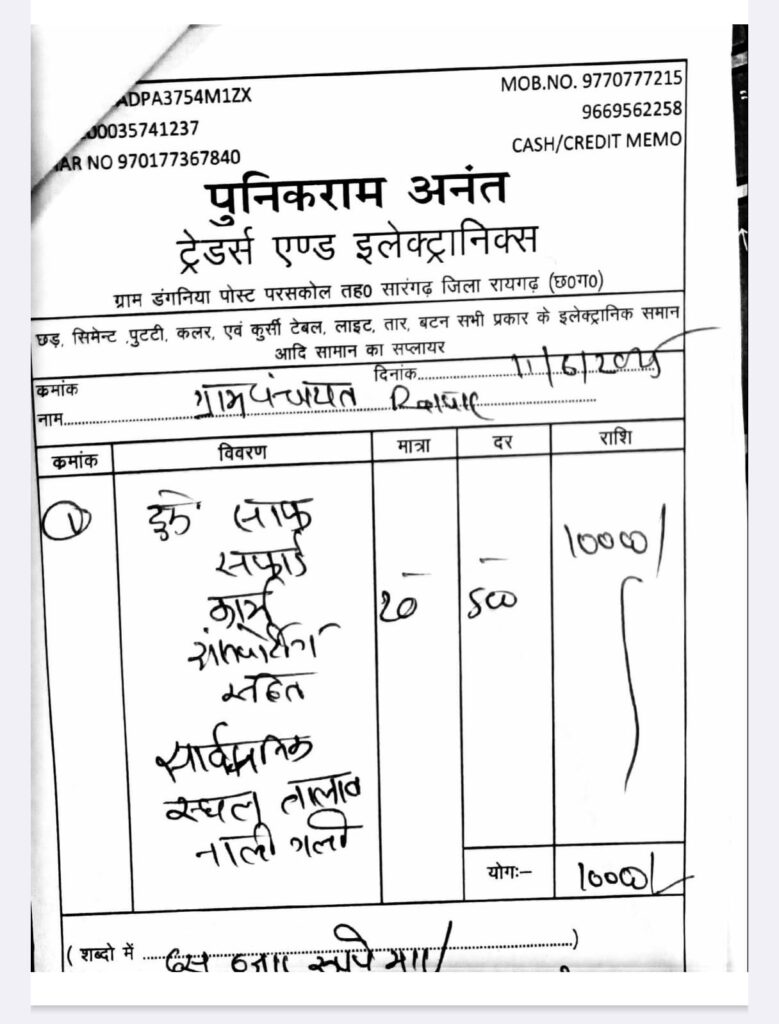 ADPA3754M1ZX
MOB.NO. 9770777215
00035741237
9669562258
AR NO 970177367840
CASH/CREDIT MEMO
पुनिकराम अनंत
ट्रेडर्स एण्ड इलेक्ट्रानिक्स
ग्राम डंगनिया पोस्ट परसकोल तह0 सारंगढ़ जिला रायगढ़ (छ0ग0)
छड़, सिमेन्ट ,पुटटी, कलर, एवं कुर्सी टेबल, लाइट, तार, बटन सभी प्रकार के इलेक्ट्रानिक समान
आदि सामान का सप्लायर
कमांक दिनांक 11/6/2025
नाम ग्रामपंचायत
कमांक विवरण मात्रा दर राशि
1 साफ 10000/
सफाई
कार्य 20 500
सहित
सार्वजनिक
स्थल तालाब
नाली गली
योगः– 10000/
( शब्दो में दस रूपये )